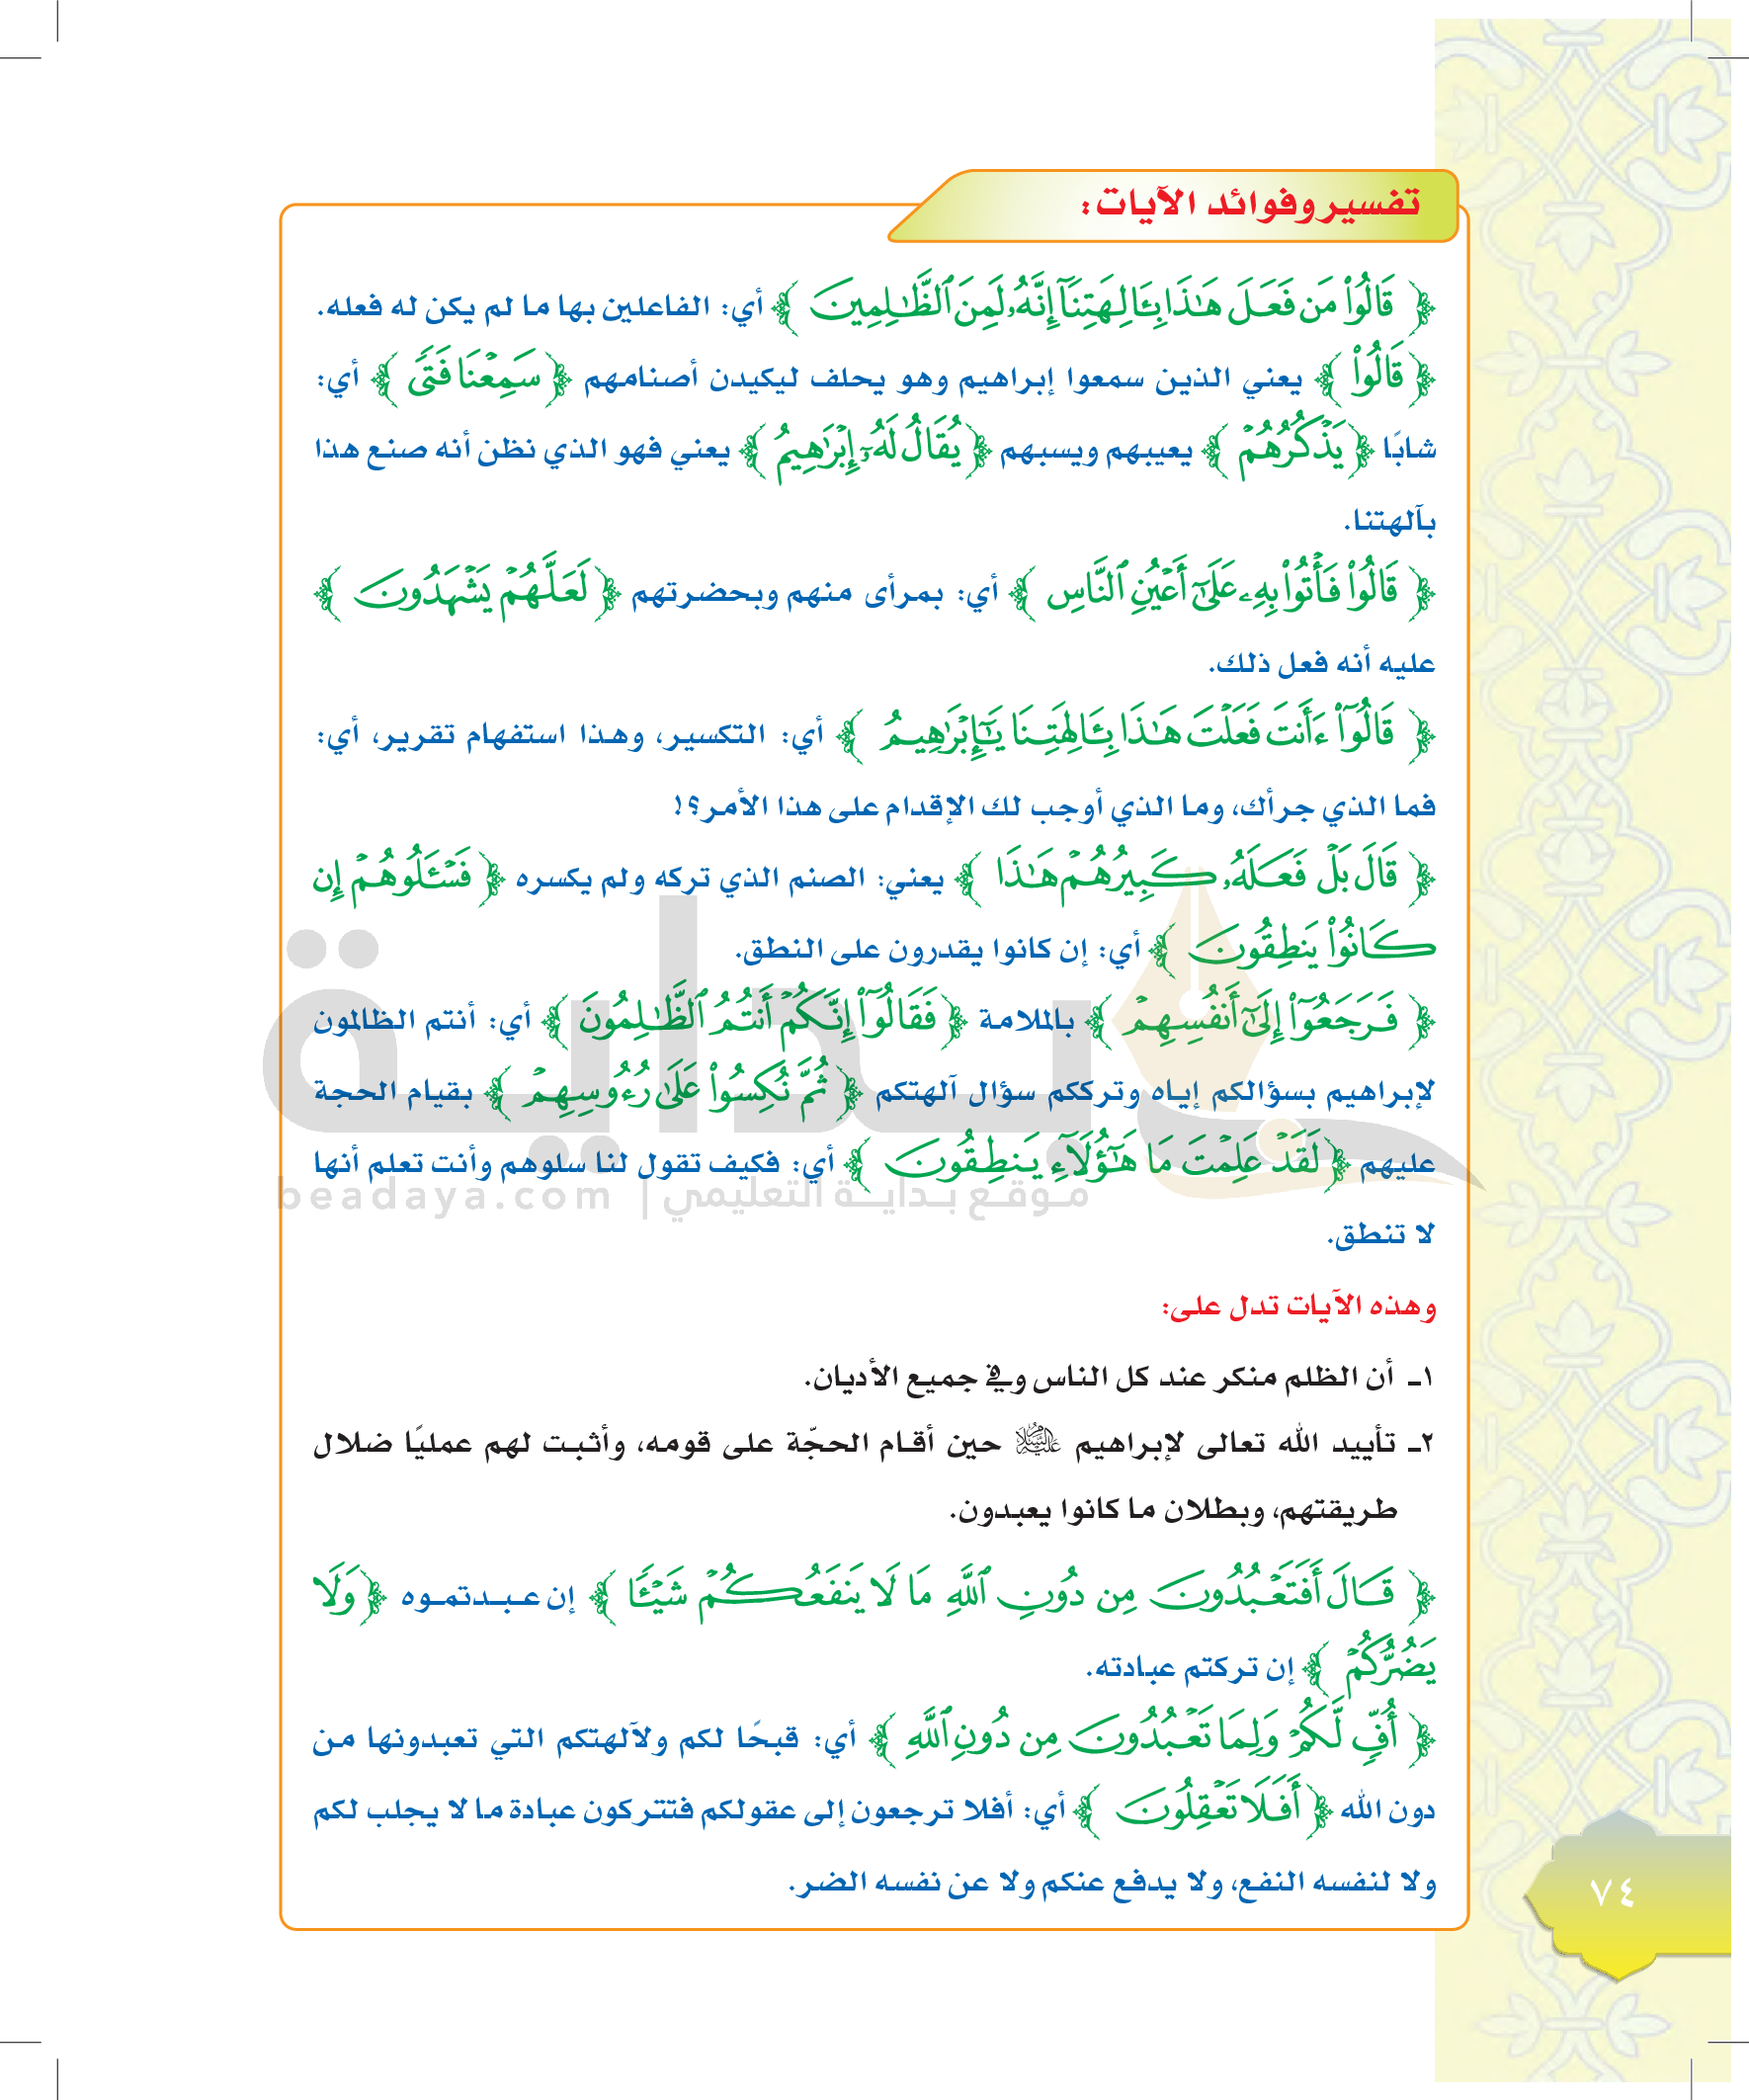 تفسير وفوائد الآيات:
﴿ قَالُوا۟ مَن فَعَلَ هَـٰذَا بِـَٔالِهَتِنَآ إِنَّهُۥ لَمِنَ ٱلظَّـٰلِمِينَ ﴾ أي: الفاعلين بها ما لم يكن له فعله.
﴿ قَالُوا۟ ﴾ يعني الذين سمعوا إبراهيم وهو يحلف ليكيدن أصنامهم ﴿ سَمِعْنَا فَتًى ﴾ أي:
شابًا ﴿ يَذْكُرُهُمْ ﴾ يعيبهم ويسبهم ﴿ يُقَالُ لَهُۥٓ إِبْرَٰهِيمُ ﴾ يعني فهو الذي نظن أنه صنع هذا
بآلهتنا.
﴿ قَالُوا۟ فَأْتُوا۟ بِهِۦ عَلَىٰٓ أَعْيُنِ ٱلنَّاسِ ﴾ أي: بمرأى منهم وبحضرتهم ﴿ لَعَلَّهُمْ يَشْهَدُونَ ﴾
عليه أنه فعل ذلك.
﴿ قَالُوٓا۟ ءَأَنتَ فَعَلْتَ هَـٰذَا بِـَٔالِهَتِنَا يَـٰٓإِبْرَٰهِيمُ ﴾ أي: التكسير، وهذا استفهام تقرير، أي:
فما الذي جرأك، وما الذي أوجب لك الإقدام على هذا الأمر؟!
﴿ قَالَ بَلْ فَعَلَهُۥ كَبِيرُهُمْ هَـٰذَا ﴾ يعني: الصنم الذي تركه ولم يكسره ﴿ فَسْـَٔلُوهُمْ إِن
كَانُوا۟ يَنطِقُونَ ﴾ أي: إن كانوا يقدرون على النطق.
﴿ فَرَجَعُوٓا۟ إِلَىٰٓ أَنفُسِهِمْ ﴾ بالملامة ﴿ فَقَالُوٓا۟ إِنَّكُمْ أَنتُمُ ٱلظَّـٰلِمُونَ ﴾ أي: أنتم الظالمون
لإبراهيم بسؤالكم إياه وترككم سؤال آلهتكم ﴿ ثُمَّ نُكِسُوا۟ عَلَىٰ رُءُوسِهِمْ ﴾ بقيام الحجة
عليهم ﴿ لَقَدْ عَلِمْتَ مَا هَـٰٓؤُلَآءِ يَنطِقُونَ ﴾ أي: فكيف تقول لنا سلوهم وأنت تعلم أنها
بداية
موقع بداية التعليمي | beadaya.com
لا تنطق.
وهذه الآيات تدل على:
١ـ أن الظلم منكر عند كل الناس وفي جميع الأديان.
٢ـ تأييد الله تعالى لإبراهيم عليه السلام حين أقام الحجّة على قومه، وأثبت لهم عمليًا ضلال
طريقتهم، وبطلان ما كانوا يعبدون.
﴿ قَالَ أَفَتَعْبُدُونَ مِن دُونِ ٱللَّهِ مَا لَا يَنفَعُكُمْ شَيْـًٔا ﴾ إن عبدتموه ﴿ وَلَا
يَضُرُّكُمْ ﴾ إن تركتم عبادته.
﴿ أُفٍّ لَّكُمْ وَلِمَا تَعْبُدُونَ مِن دُونِ ٱللَّهِ ﴾ أي: قبحًا لكم ولآلهتكم التي تعبدونها من
دون الله ﴿ أَفَلَا تَعْقِلُونَ ﴾ أي: أفلا ترجعون إلى عقولكم فتتركون عبادة ما لا يجلب لكم
ولا لنفسه النفع، ولا يدفع عنكم ولا عن نفسه الضر.
٧٤